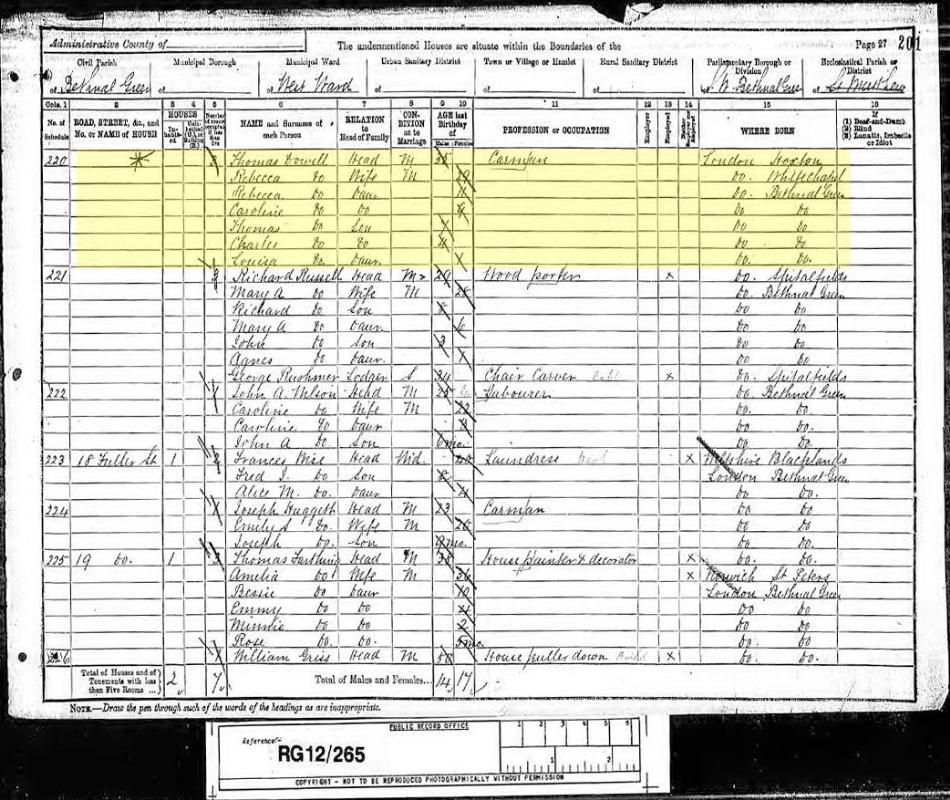 Administrative County of
The undermentioned Houses are situate within the Boundaries of the
Page 27
201
Civil Parish
Municipal Borough
Municipal Ward
Urban Sanitary District
Town or Village or Hamlet
Rural Sanitary District
Parliamentary Borough or Division
Ecclesiastical Parish or District
of Bethnal Green of of West Ward of of of of Bethnal Green of St Matthew
Cols. 1 2 3 4 5 6 7 8 9 10 11 12 13 14 15 16
No. of Schedule
ROAD, STREET, &c., and No. or NAME of HOUSE
HOUSES
NAME and Surname of each Person
RELATION to Head of Family
CONDITION as to Marriage
AGE last Birthday of
Males Females
PROFESSION or OCCUPATION
Employer
Employed
WHERE BORN
If
(1) Deaf-and-Dumb
(2) Blind
(3) Lunatic, Imbecile or Idiot
220 Thomas Dowell Head M Carman London Hoxton
Rebecca Do Wife M Do. Whitechapel
Rebecca Do Daur Do. Bethnal Green
Caroline Do Do Do Do
Thomas Do Son Do Do
Charles Do Do Do Do
Louisa Do. Daur. Do. Do.
221 Richard Russell Head M 29 Wood porter x Do. Spitalfields
Mary A Do Wife M 28 Do. Bethnal Green
Richard Do Son Do Do
Mary A Do Daur. 6 Do Do
John Do Son 3 Do Do
Agnes Do Daur. Do Do
George Lodger S 24 Chair Carver x Do. Spitalfields
222 John A. Wilson Head M Labourer Do. Bethnal Green
Caroline Do Wife M 22 Do. Do.
Caroline Do Daur Do Do
John A Do Son mo. Do. Do.
223 18 Fuller St 1 Frances Wise Head Wid. Laundress x Wiltshire Blacklands
Fred J. Do Son London Bethnal Green
Alice M. Do. Daur Do Do.
224 Joseph Huggett Head M 23 Carman Do Do
Emily S Do. Wife M 20 Do Do.
Joseph Do. Son mo. Do Do.
225 19 Do. 1 Thomas Farthing Head M House painter & decorator x Do. Do.
Amelia Do Wife M x Norwich St Peters
Bessie Do Daur 10 London Bethnal Green
Emmy Do Do Do Do
Minnie Do Do 2 Do Do
Rose Do. Do. 5mo. Do. Do.
226 William Griss Head M House puller down x Do. Do.
Total of Houses and of Tenements with less than Five Rooms ... 2 7
Total of Males and Females... 14 17
NOTE.—Draw the pen through such of the words of the headings as are inappropriate.
PUBLIC RECORD OFFICE
Reference:-
RG12/265
1 2 3 4 5 6
1 2
COPYRIGHT - NOT TO BE REPRODUCED PHOTOGRAPHICALLY WITHOUT PERMISSION